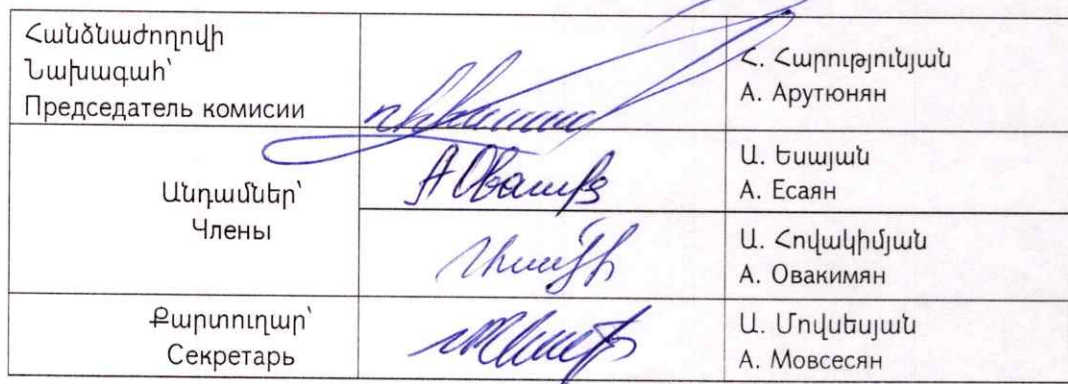 Հանձնաժողովի
Նախագահ՝
Председатель комисии
Հ. Հարությունյան
А. Арутюнян
Անդամներ՝
Члены
Ա. Եսայան
А. Есаян
Ա. Հովակիմյան
А. Овакимян
Քարտուղար՝
Секретарь
Ա. Մովսեսյան
А. Мовсесян